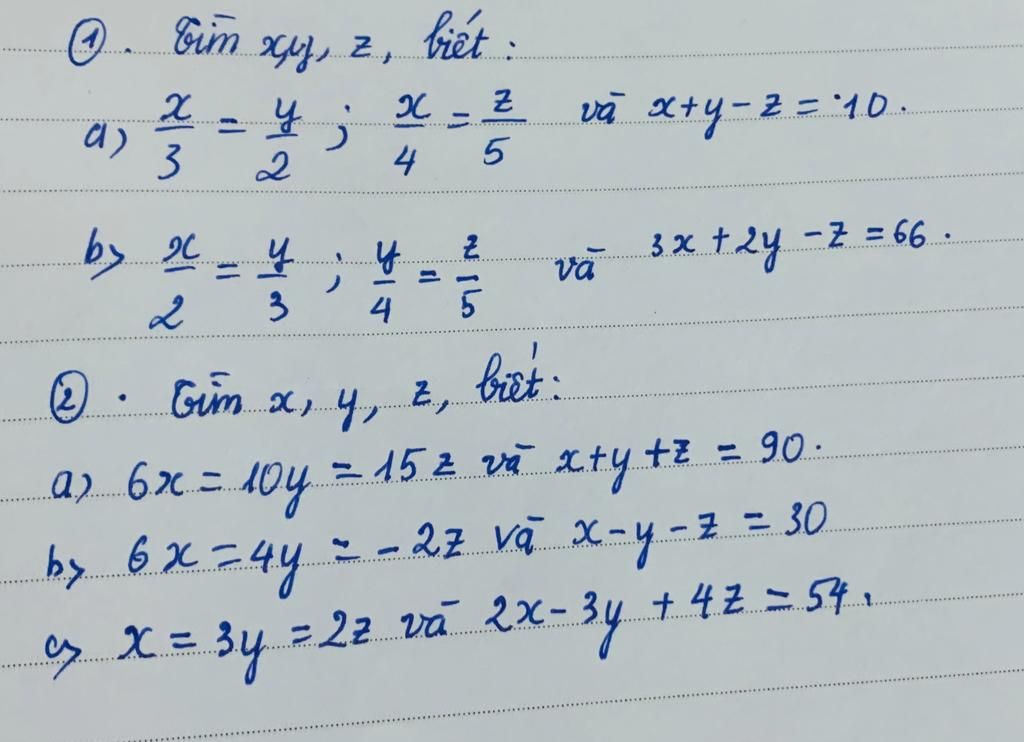 ①. Tìm x,y, z, biết:
a) x/3 = y/2 ; x/4 = z/5 và x+y-z = 10.
b) x/2 = y/3 ; y/4 = z/5 và 3x+2y-z=66.
②. Tìm x, y, z, biết:
a) 6x = 10y = 15z và x+y+z = 90.
b) 6x = 4y = -2z và x-y-z = 30
c) x = 3y = 2z và 2x-3y+4z = 54.